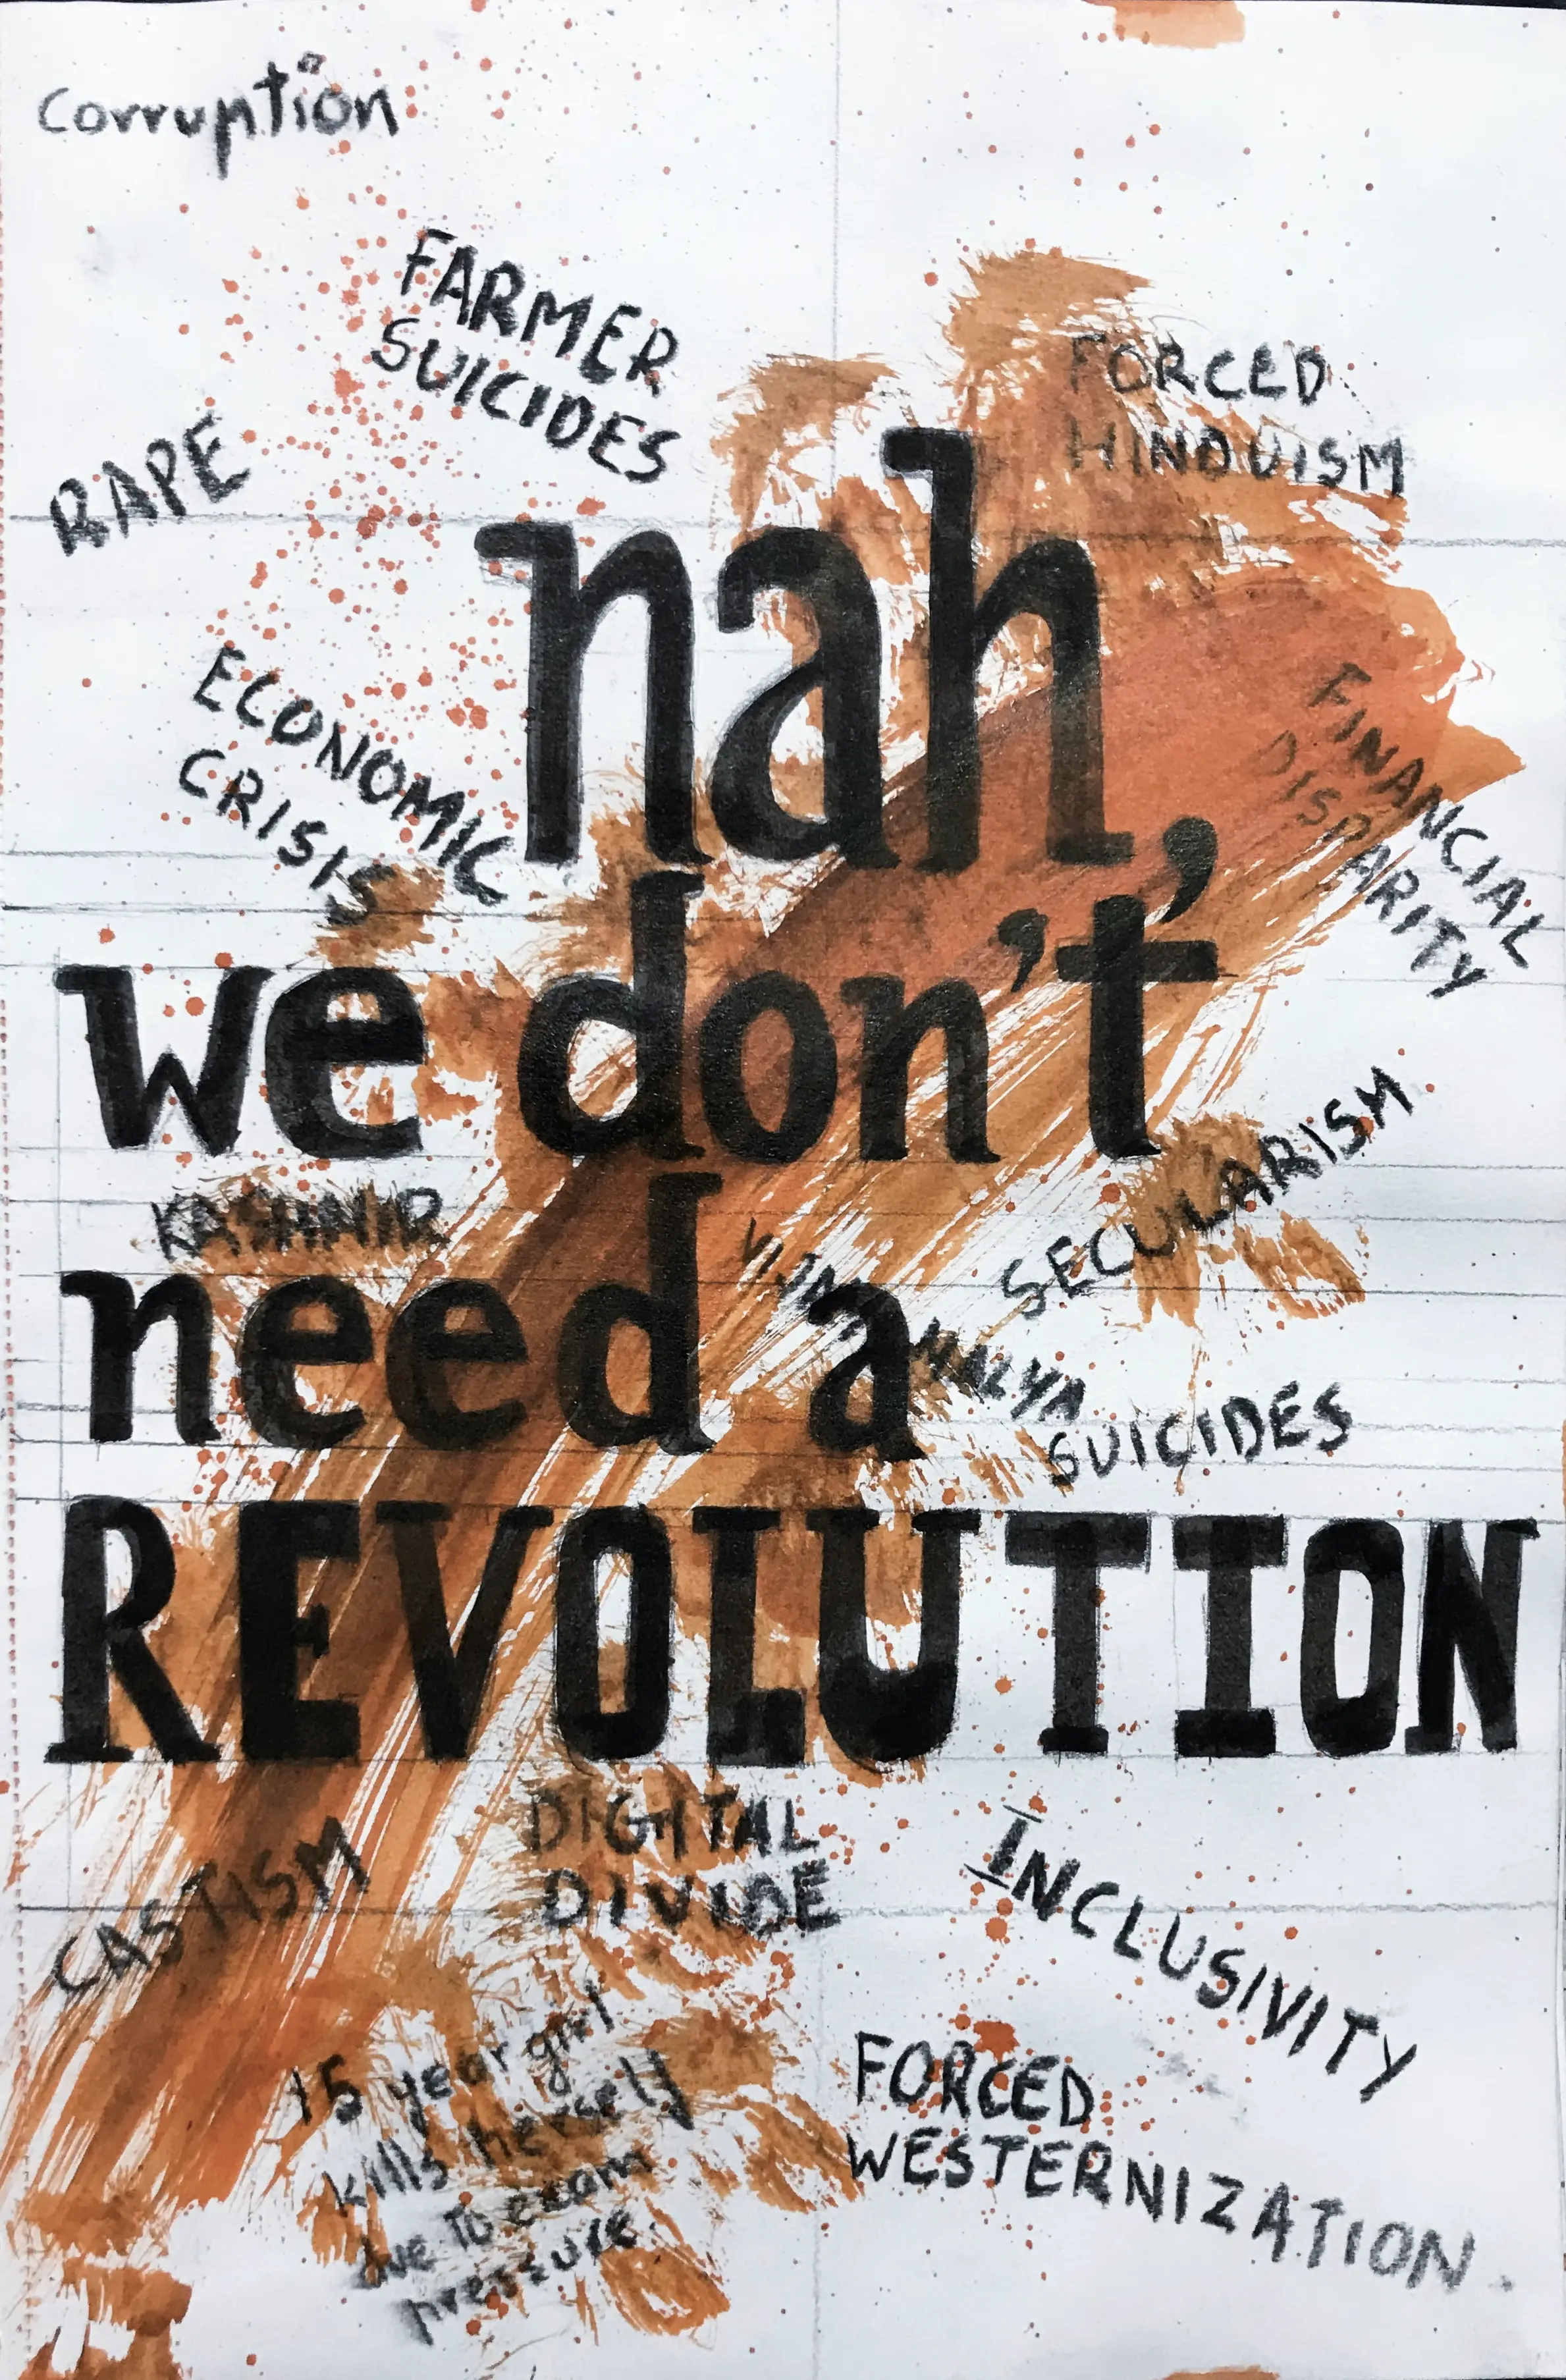 Corruption
FARMER
SUICIDES
RAPE
FORCED
HINDUISM
nah,
ECONOMIC
CRISIS
FINANCIAL
DISPARITY
we don't
KASHMIR
SECULARISM
VIJAY MALYA
need a
SUICIDES
REVOLUTION
CASTISM
DIGITAL
DIVIDE
INCLUSIVITY
15 year girl
kills herself
due to exam
pressure.
FORCED
WESTERNIZATION.